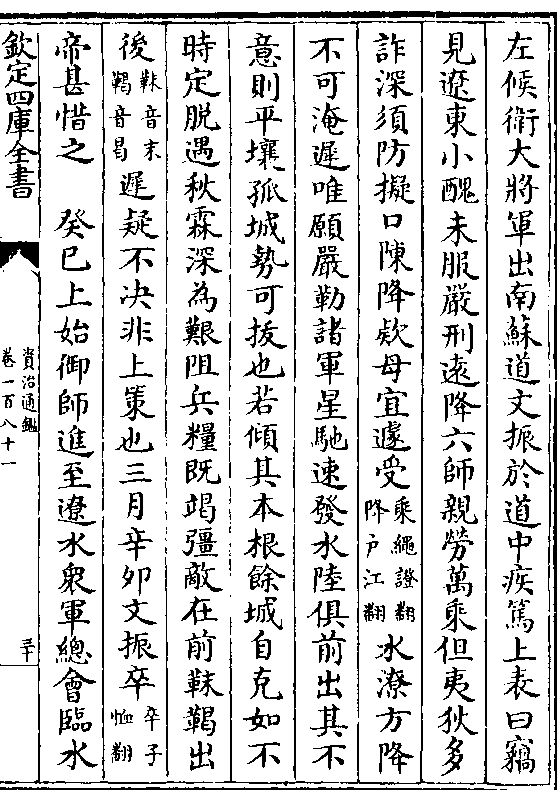 左候衛大將軍出南蘇道文振於道中疾篤上表曰竊
見遼東小醜未服嚴刑遠降六師親勞萬乗但夷狄多
詐深須防擬口陳降欵毋宜遽受乗繩證翻降戶江翻水潦方降
不可淹遲唯願嚴勒諸軍星馳速發水陸俱前出其不
意則平壤孤城勢可拔也若傾其本根餘城自克如不
時定脫遇秋霖深為艱阻兵糧既竭彊敵在前靺鞨出
後靺音末鞨音曷遲疑不决非上策也三月辛夘文振卒卒子恤翻
帝甚惜之　癸巳上始御師進至遼水衆軍總會臨水
欽定四庫全書
資治通鑑
卷一百八十一
三十